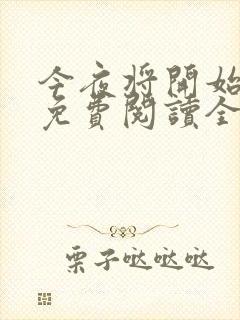 今夜将開始
免費閱讀全
栗子哒哒哒